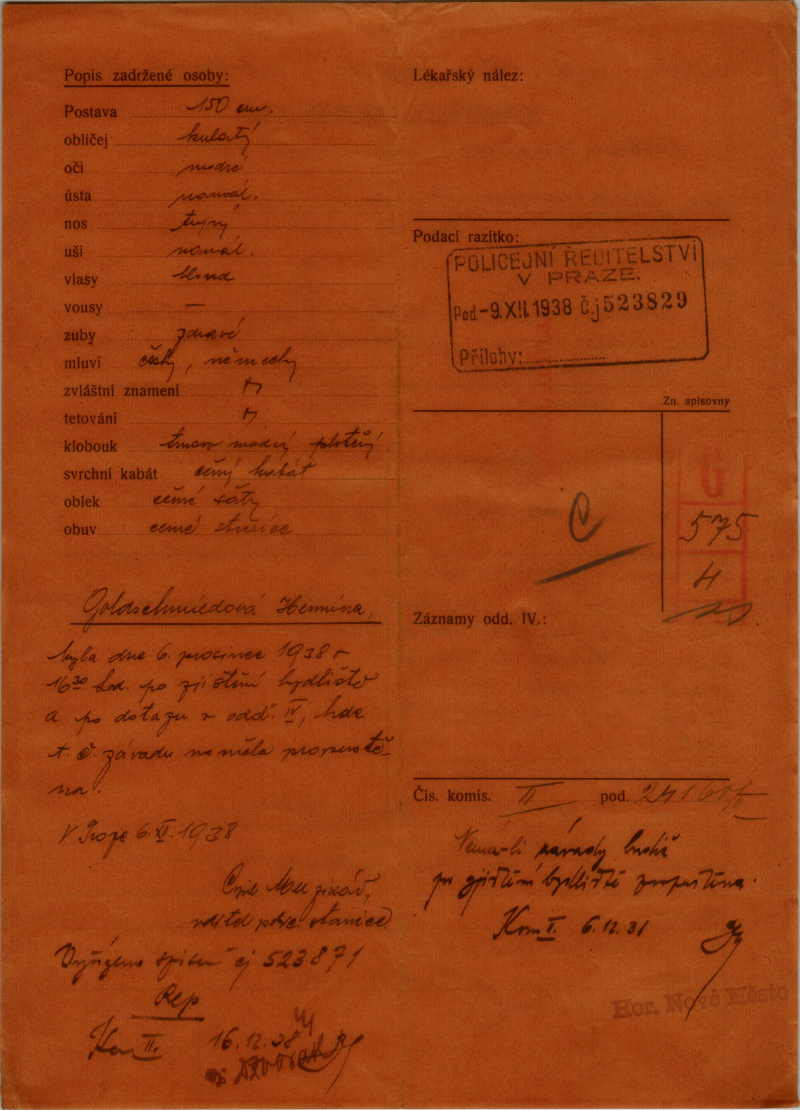 Popis zadržené osoby:
Postava 150 cm.
obličej kulatý
oči modré
ústa normál.
nos
uši normál.
vlasy blond
vousy —
zuby zdravé
mluví česky, německy
zvláštní znamení
tetování
klobouk tmavo modrý
svrchní kabát černý kabát
oblek černé šaty
obuv černé střevíce
Goldschmiedová Hermina,
byla dne 6. prosince 1938 v
16³⁰ hod. po zjištění bydliště
a po dotazu v odd. IV, kde
t. č. závadu neměla propuště-
na.
V Praze 6. XII. 1938
stanice
čj 523871
Rep
Kom II. 16.12.38
Lékařský nález:
Podací razítko:
POLICEJNÍ ŘEDITELSTVÍ
V PRAZE.
Pod. -9. XII. 1938 č.j 523829
Přílohy:
Zn. spisovny
C
G
575
4
Záznamy odd. IV.:
Čís. komis. II pod.
Nemá-li závady budiž
po zjištění bydliště propuštěna.
Kom I. 6.12.31
Hor. Nové Město